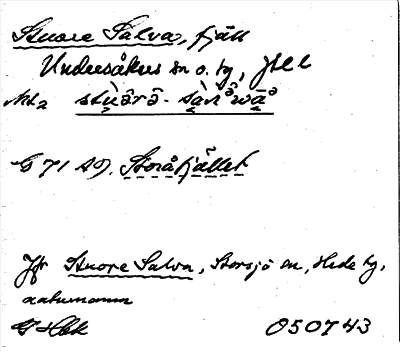 Stuore Salva, fjäll
Undersåkers sn o. tg, Jtl
stùrə-
G 71 AD. Storåfjället
Jfr Stuore Salva, Storsjö sn, Hede tg,
naturnamn
050743